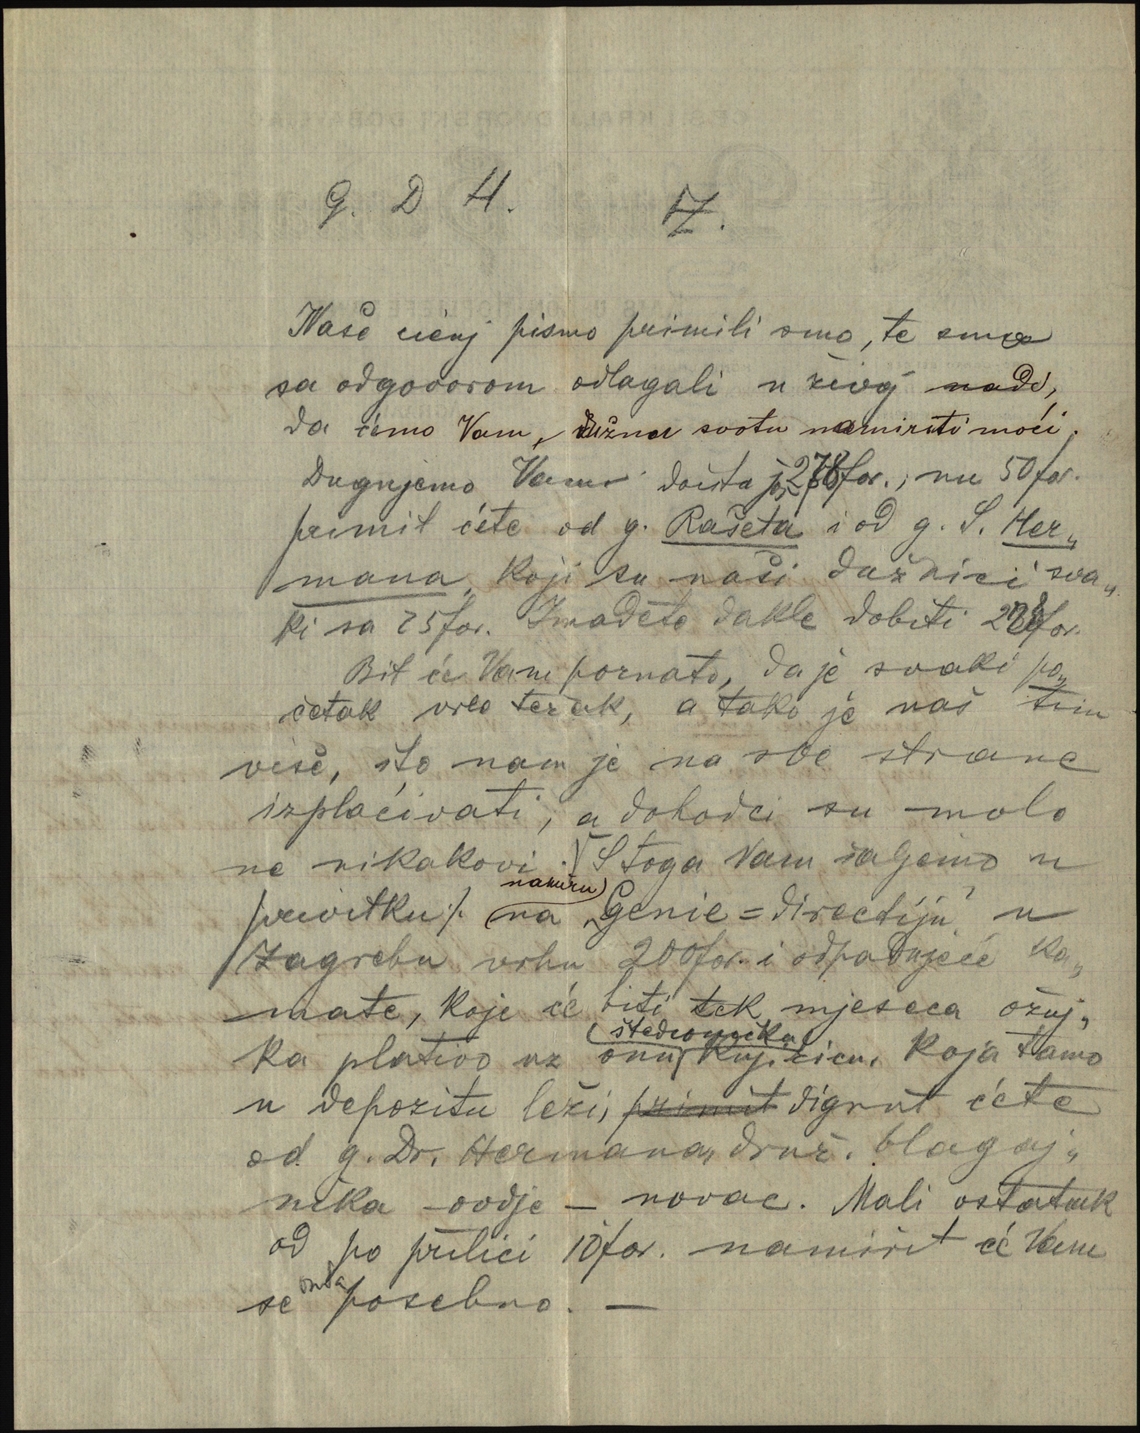 G. D H. Z.
Vaše cienj pismo primili smo, te smo
sa odgovorom odlagali u živoj nade,
da ćemo Vam, dužnu svotu namiriti moći.
Dugujemo Vam doista još 278 for., nu 50 for.
primit ćete od g. Rašeta i od g. S. Her„
mana, koji su naši dužnici sva„
ki sa 25 for. Imadete dakle dobiti 228 for.
Bit će Vam poznato, da je svaki po„
četak vrlo težak, a tako je naš tim
više, što nam je na sve strane
izplaćivati, a dohodci su malo
ne nikakovi. Stoga Vam šaljemo u
privitku ·/. (namiru)
na „Genie=directiju“ u
Zagrebu vrhu 200 for. i odpadajuće ka„
mate, koje će biti tek mjeseca ožuj„
ka plativo uz onu (štedionicku)
knjižicu, koja tamo
u depozitu leži, primit dignut ćete
od g. Dr. Hermana, druž. blagaj„
nika – ovdje – novac. Mali ostatak
od po prilici 10 for. namirit će Vam
se onda posebno. —